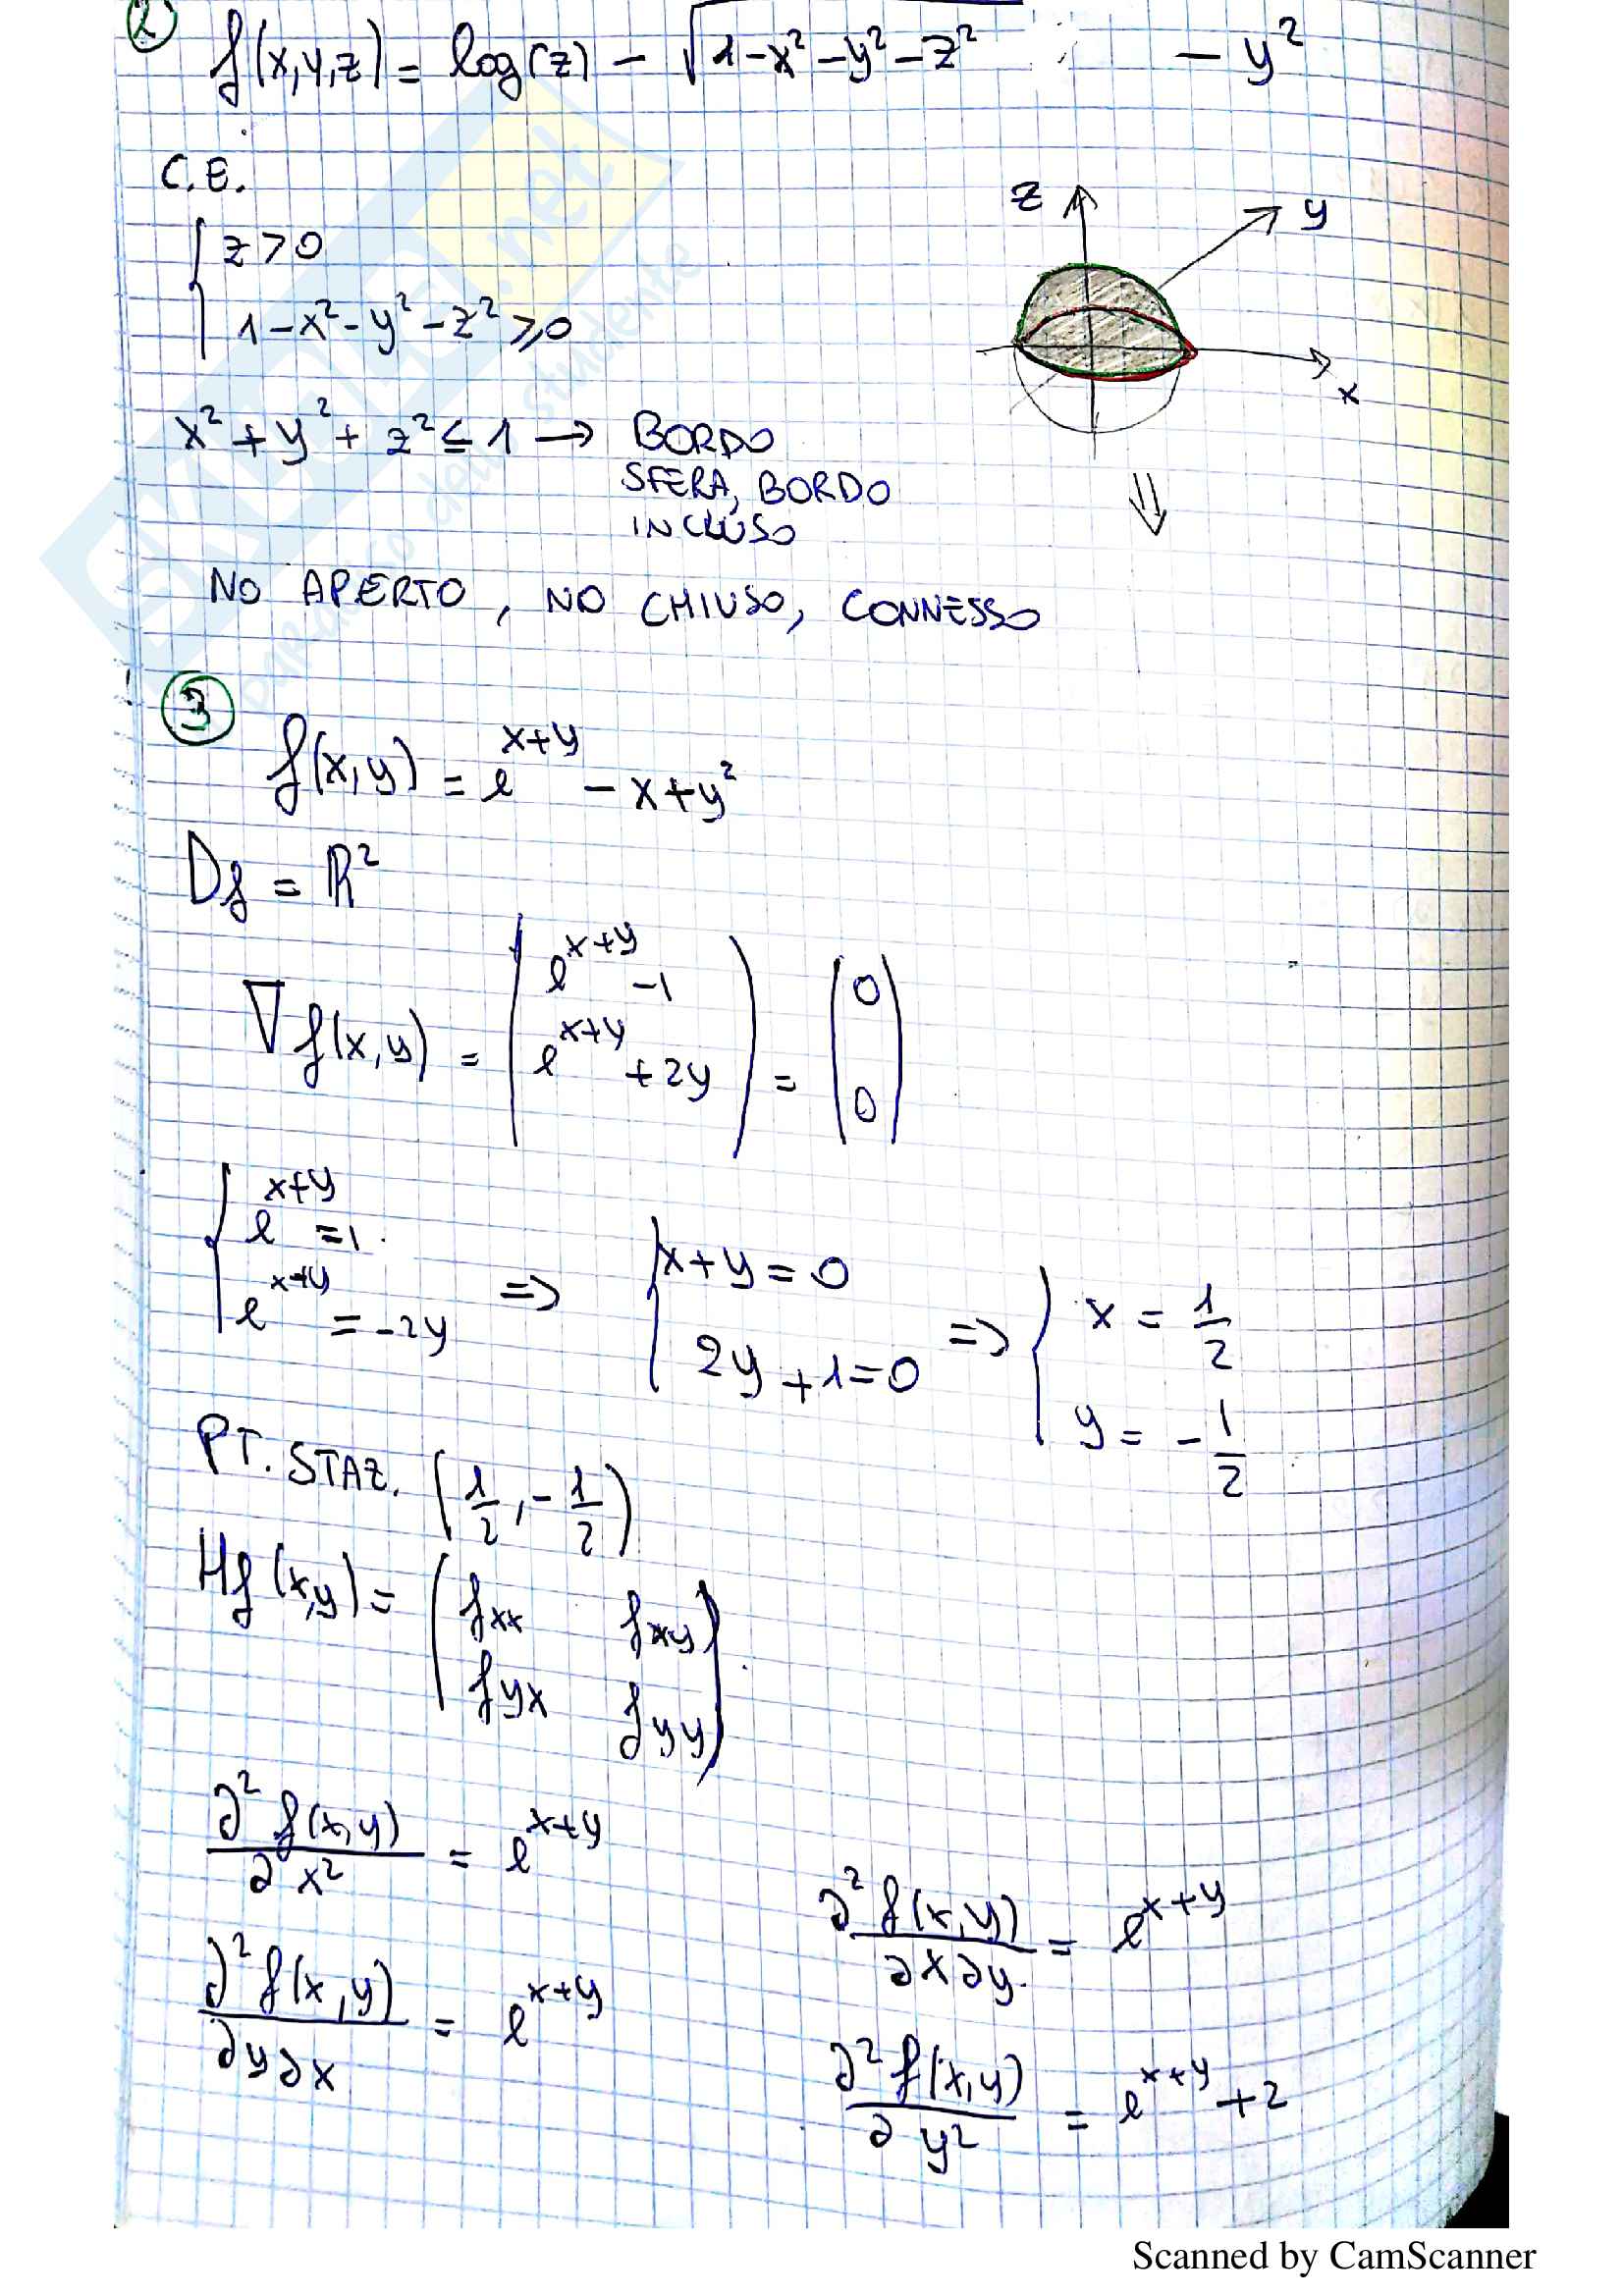 2) f(x,y,z) = log(z) - √(1-x²-y²-z²) - y²
C.E.
{ z>0
1-x²-y²-z² ≥0
x²+y²+z² ≤ 1 → BORDO
SFERA, BORDO
INCLUSO
z
y
x
⇓
NO APERTO, NO CHIUSO, CONNESSO
3
f(x,y) = e^{x+y} - x+y²
Df = ℝ²
∇f(x,y) = ( e^{x+y} -1 ; e^{x+y} +2y ) = ( 0 ; 0 )
{ e^{x+y} =1 ; e^{x+y} = -2y => { x+y=0 ; 2y+1=0 => { x = 1/2 ; y = -1/2
PT. STAZ. (1/2, -1/2)
Hf(x,y) = ( fxx fxy ; fyx fyy )
∂²f(x,y)/∂x² = e^{x+y}
∂²f(x,y)/∂x∂y = e^{x+y}
∂²f(x,y)/∂y∂x = e^{x+y}
∂²f(x,y)/∂y² = e^{x+y} +2
Scanned by CamScanner